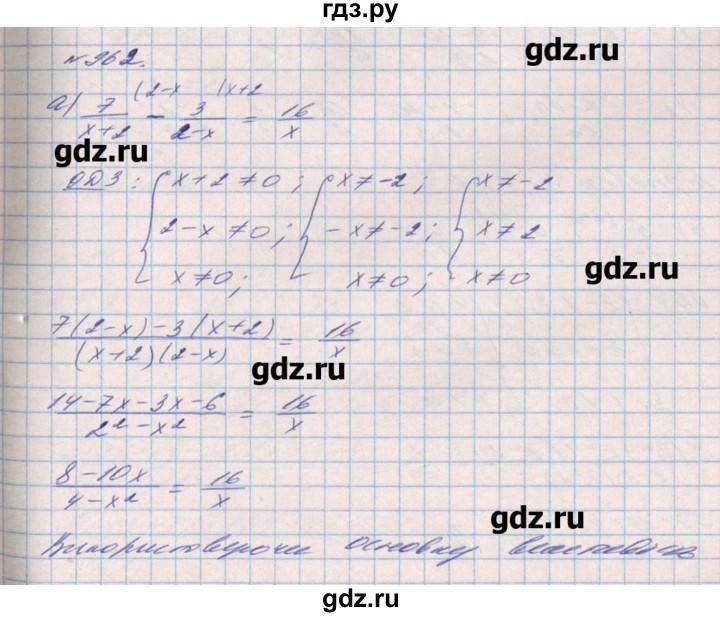 гдз.ру
gdz.ru
№962.
а) 7/(x+2) (2-x − 3/(2-x) (x+2 = 16/x
gdz.ru
ОДЗ: { x+2≠0; { x≠-2; { x≠-2
2-x≠0; -x≠-2; x≠2
x≠0; x≠0; x≠0
gdz.ru
(7(2-x)-3(x+2))/((x+2)(2-x)) = 16/x
gdz.ru
(14-7x-3x-6)/(2²-x²) = 16/x
(8-10x)/(4-x²) = 16/x
gdz.ru
Використовуючи основну властивість
gdz.ru